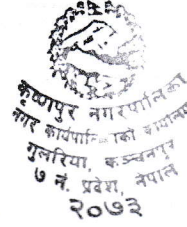 कृष्णपुर नगरपालिका
नगर कार्यपालिकाको कार्यालय
गुलरिया, कञ्चनपुर
७ नं. प्रदेश, नेपाल
२०७३